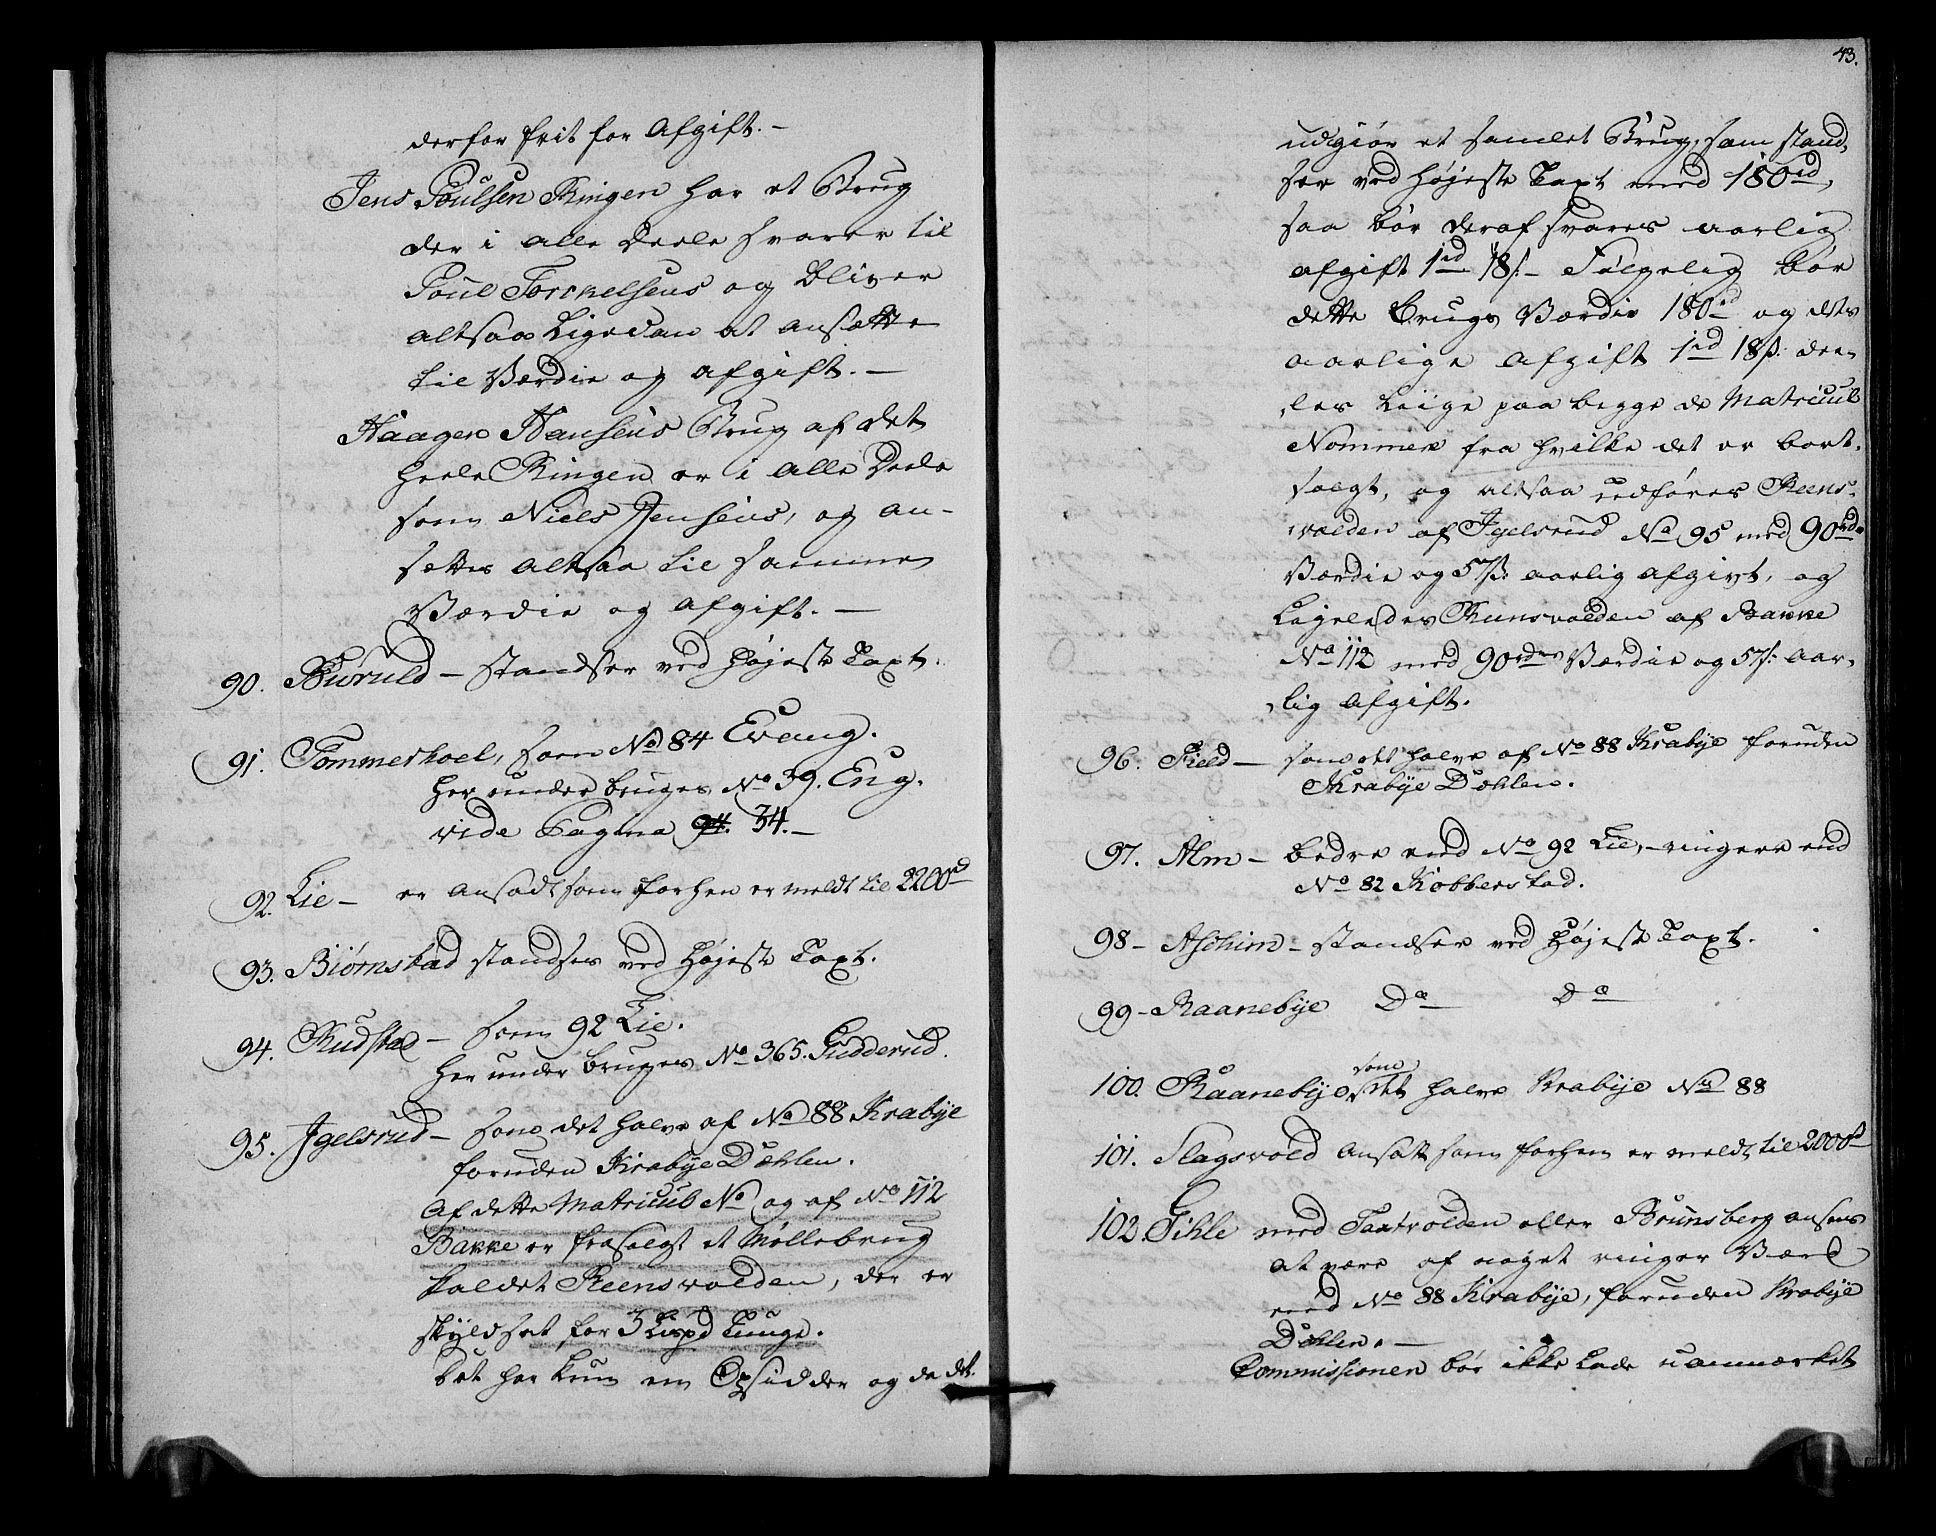 derfor frit for Afgift. –
Jens Poulsen Ringen har et Brug
der i alle Deele svarer til
Poul Torckelsens og bliver
altsaa Ligedan at ansætte
til Værdie og Afgift. –
Haagen Hansens Brug af det
heele Ringen er i alle Deele
som Niels Jensens, og an-
sættes altsaa til samme
Værdie og Afgift. –
90. Buruld – standser ved højeste Taxt.
91. Tommerhoel, som No 84 Evang.
her under bruges No 39. Eng.
vide Pagina 34. –
92. Lie – er ansadt som forhen er meldt til 2200 rd
93. Biørnstad standser ved højeste Taxt.
94. Rudstad – som 92 Lie.
her under bruges No 365. Gudderud.
95. Jgelsrud – som det halve af No 88 Krabÿe
foruden Krabÿe Dæhlen.
Af dette Matricul No og af No 112
Bakke er frasolgt et Møllebrug
kaldet Reensvolden, der er
skÿldsat for 3 Lispd Tunge.
Det har kun en Opsidder og da det
43.
udgiør et samlet Brug, som stand,
ser ved højeste Taxt med 180 rd,
saa bør deraf svares aarlig
afgift 1 rd 18 s. – Følgelig bør
dette Brugs Værdie 180 rd og dets
aarlige Afgift 1 rd 18 s. dee-
les liige paa begge de Matricul
Nommere fra hvilke det er bort,
solgt, og altsaa udføres Reens-
volden af Jgelsrud No 95 med 90 rd.
Værdie og 57 s. aarlig afgivt, og
Ligeledes Runsvolden af Bakke
No 112 med 90 rdrs Værdie og 57 s. aar-
lig Afgift.
96. Field – som det halve af No 88 Krabÿe foruden
Krabÿe Dæhlen.
97. Alm – bedre end No 92 Lie, – ringere end
No 82 Kobberstad.
98 – Aschim – standser ved højeste Taxt.
99 – Raanebÿe Do Do
100. Raanebÿe som det halve Krabÿe No 88
101. Slagsvold ansatt som forhen er meldt til 2000 rd
102. Gihle med Taxtvolden eller Brunsberg ansees
at være af noget ringer Værd
end No 88 Krabÿe, foruden Krabÿe
Dæhlen. –
Commissionen bør ikke lade uanmærket